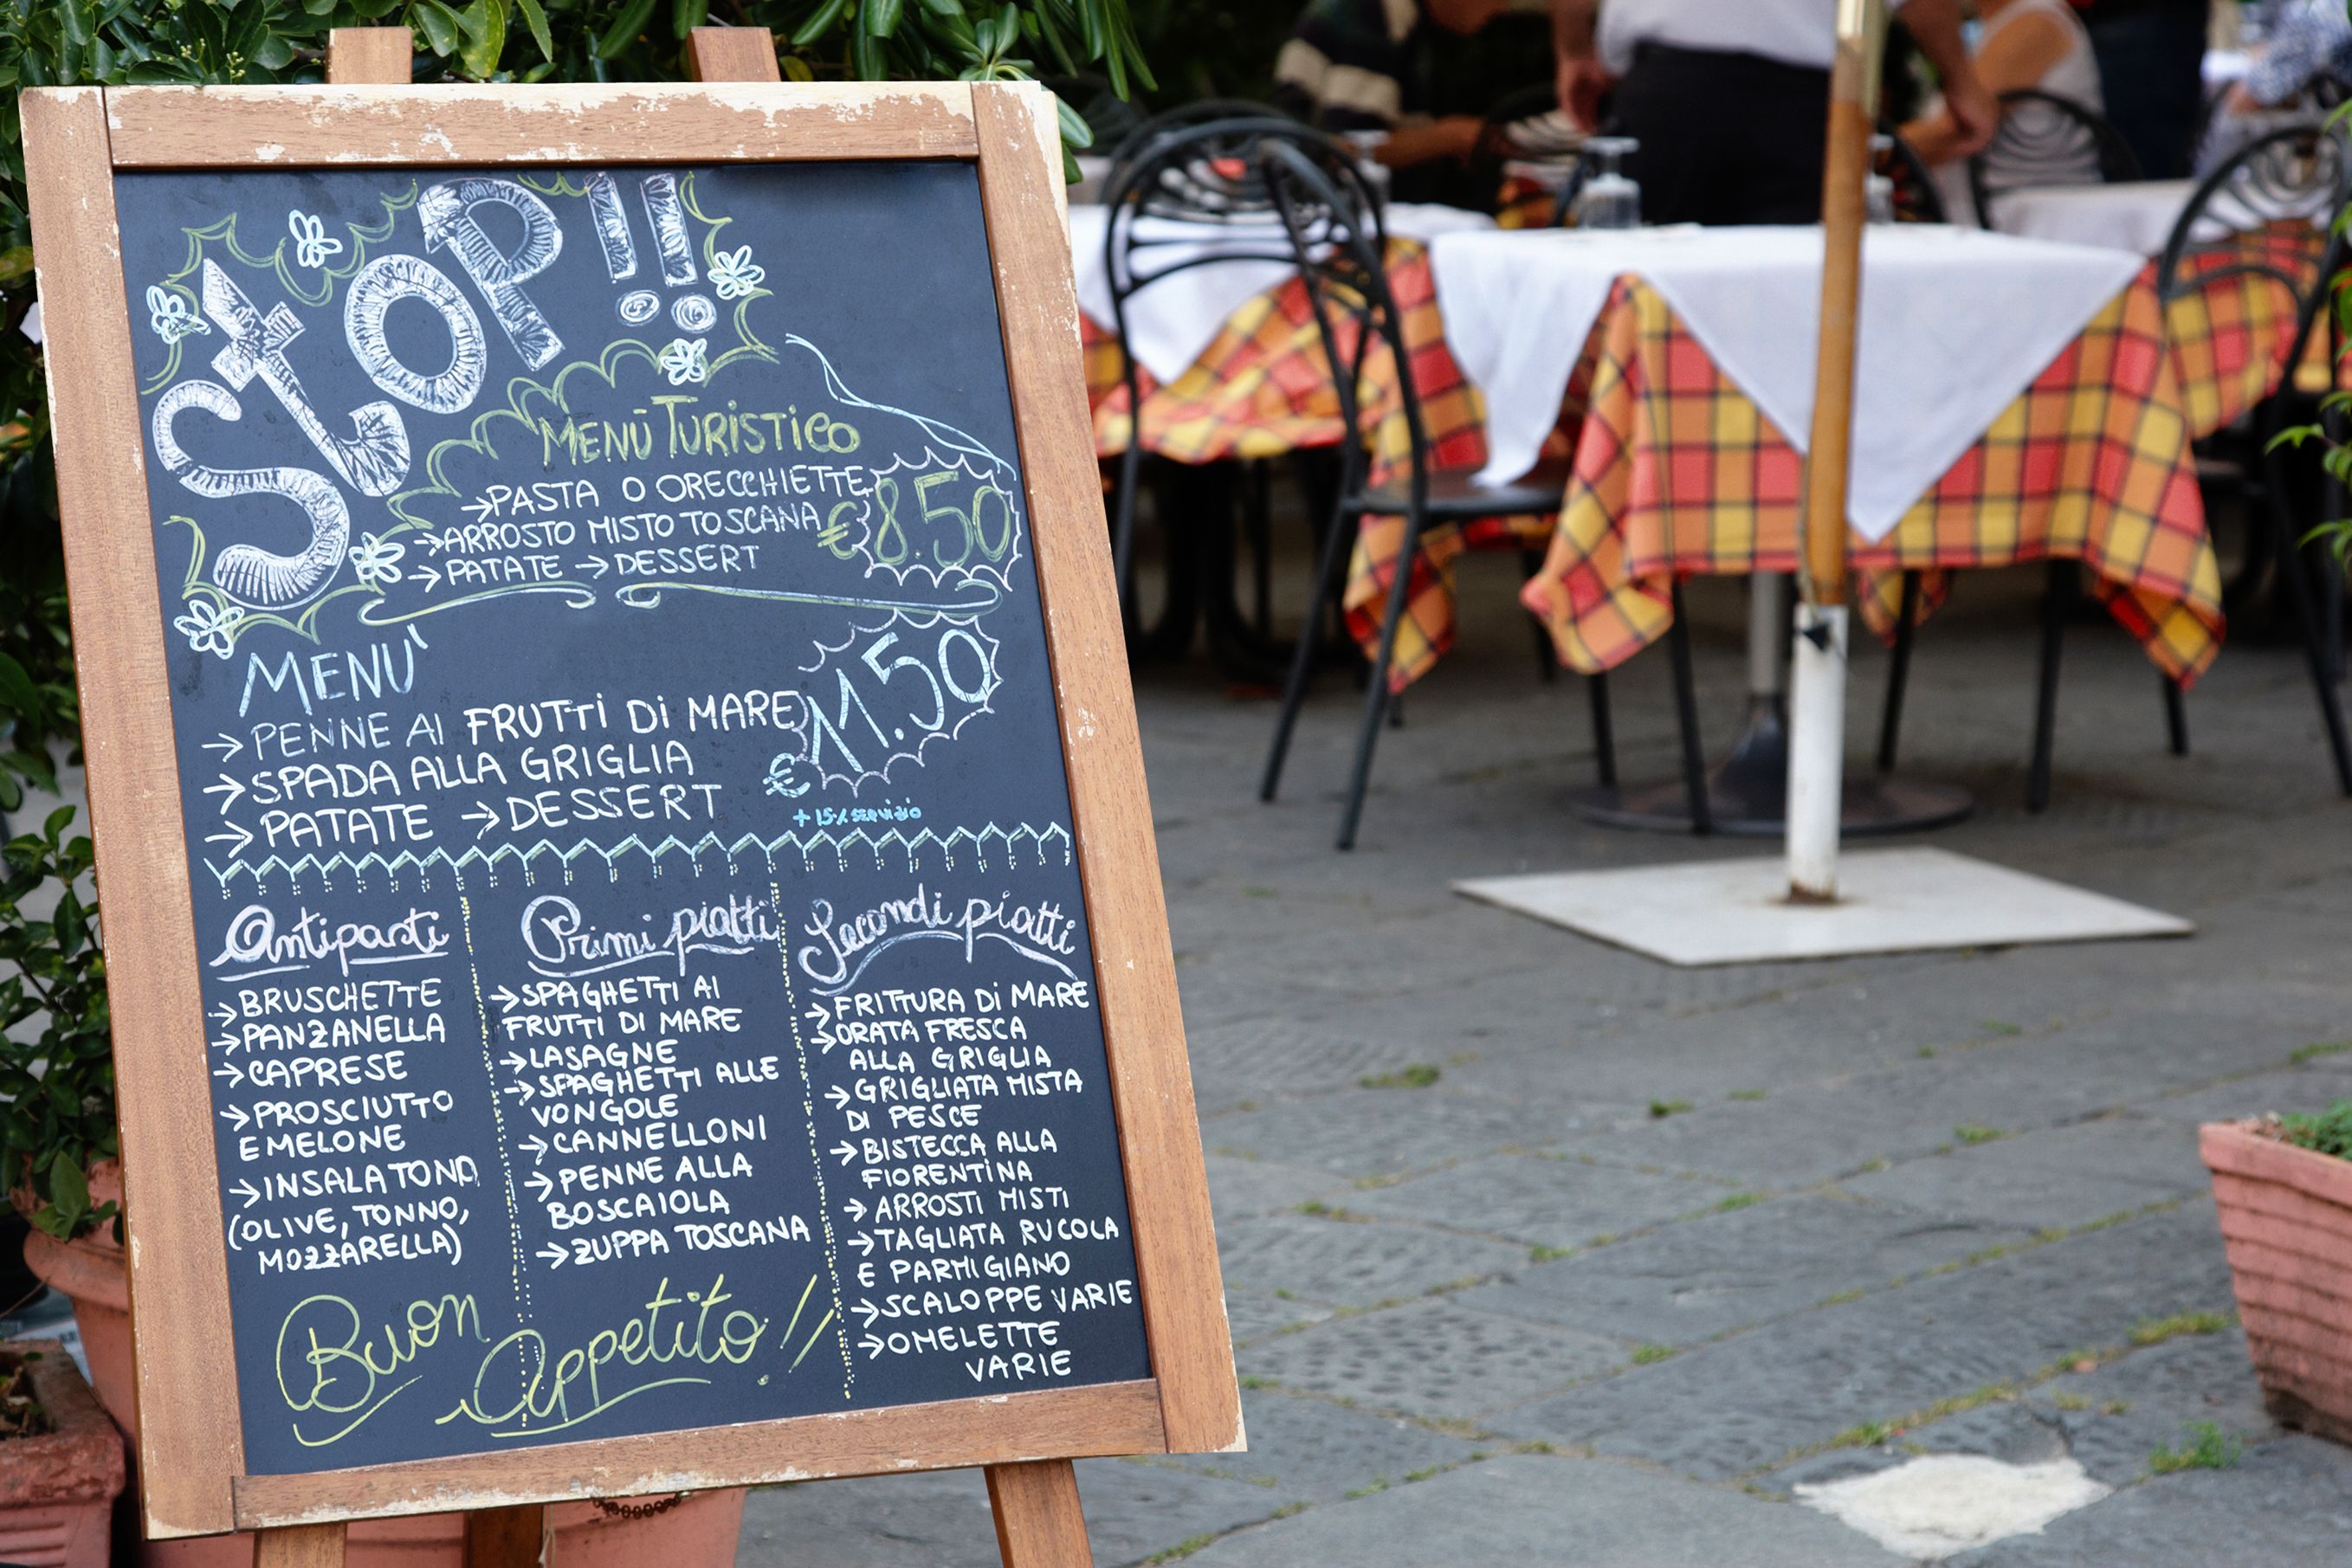 StOP!!
MENÙ TURISTICO
→PASTA O ORECCHIETTE
→ARROSTO MISTO TOSCANA
→PATATE →DESSERT
€8.50
MENU'
→PENNE AI FRUTTI DI MARE
→SPADA ALLA GRIGLIA
→PATATE →DESSERT
€11.50
+15% servizio
Antipasti
→BRUSCHETTE
→PANZANELLA
→CAPRESE
→PROSCIUTTO
E MELONE
→INSALATONA
(OLIVE, TONNO,
MOZZARELLA)
Primi piatti
→SPAGHETTI AI
FRUTTI DI MARE
→LASAGNE
→SPAGHETTI ALLE
VONGOLE
→CANNELLONI
→PENNE ALLA
BOSCAIOLA
→ZUPPA TOSCANA
Secondi piatti
→FRITTURA DI MARE
→ORATA FRESCA
ALLA GRIGLIA
→GRIGLIATA MISTA
DI PESCE
→BISTECCA ALLA
FIORENTINA
→ARROSTI MISTI
→TAGLIATA RUCOLA
E PARMIGIANO
→SCALOPPE VARIE
→OMELETTE
VARIE
Buon Appetito!!